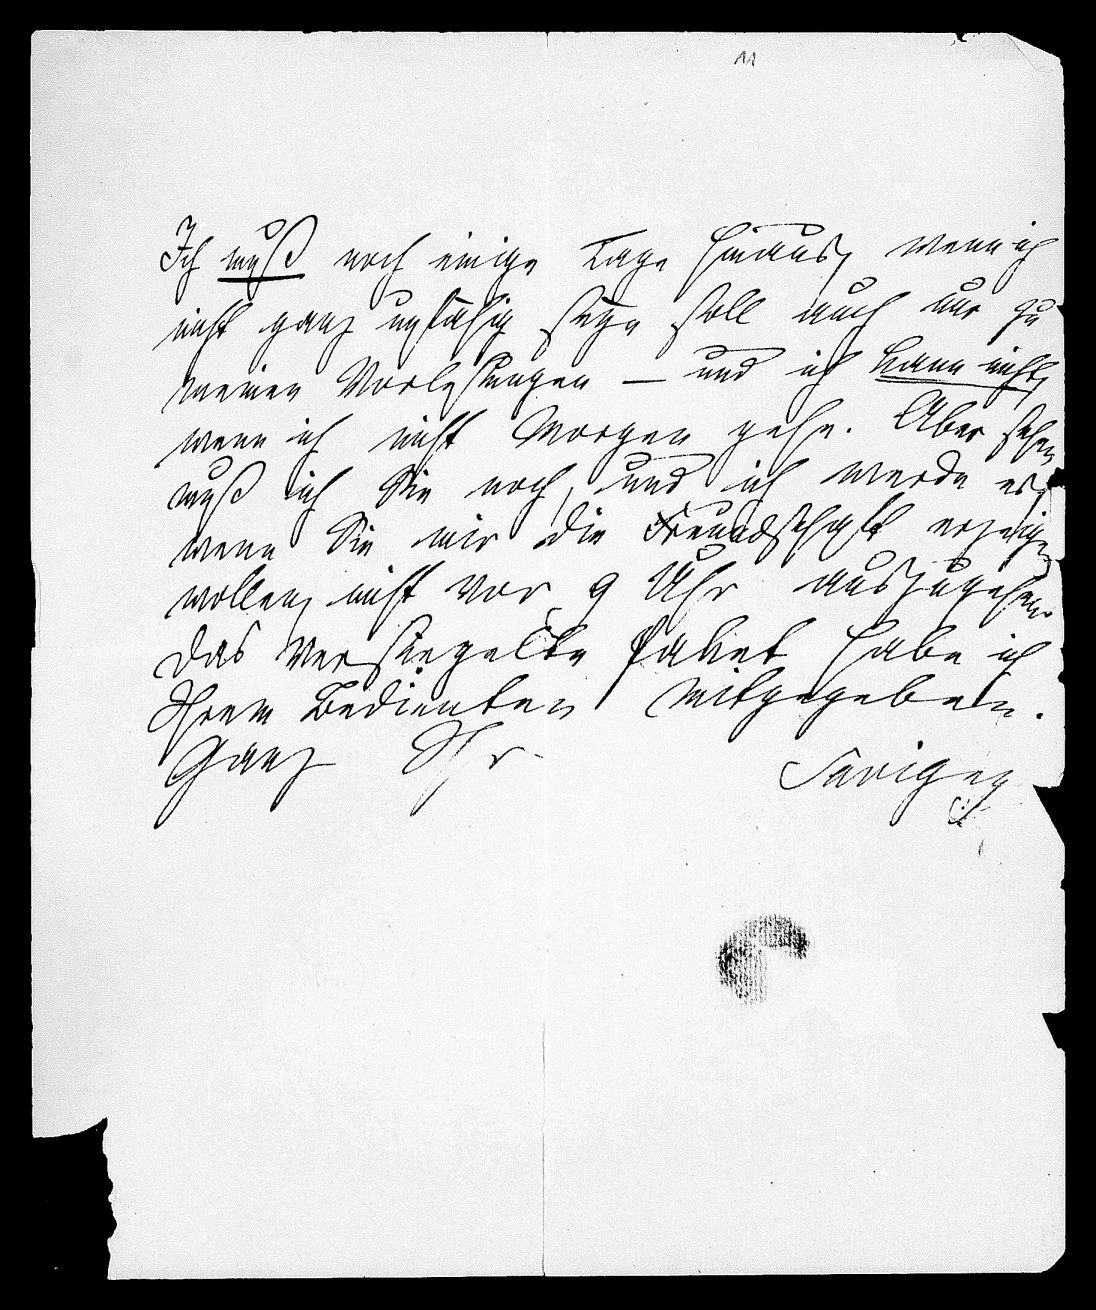 11
Ich muß noch einige Tage hinaus, wenn ich
nicht ganz unfähig seyn soll auch nur zu
meinen Vorlesungen — und ich kann nicht,
wenn ich nicht Morgen gehe. Aber sehen
muß ich Sie noch, und ich werde es,
wenn Sie mir die Freundschaft erzeigen
wollen, nicht vor 9 Uhr auszugehen.
Das versiegelte Paket habe ich
Ihrem Bedienten mitgegeben.
Ganz Ihr Savigny